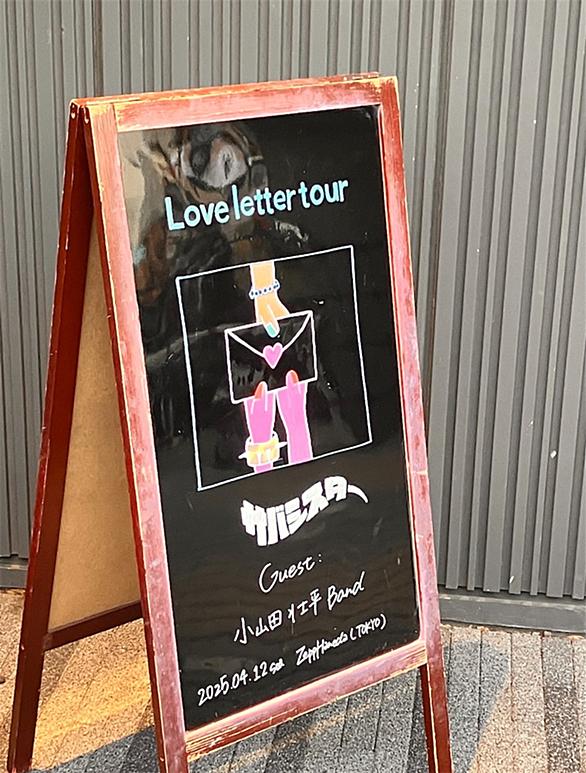 Love letter tour
サバシスター
Guest:
小山田壮平 Band
2025.04.12 sat ZeppHaneda (TOKYO)